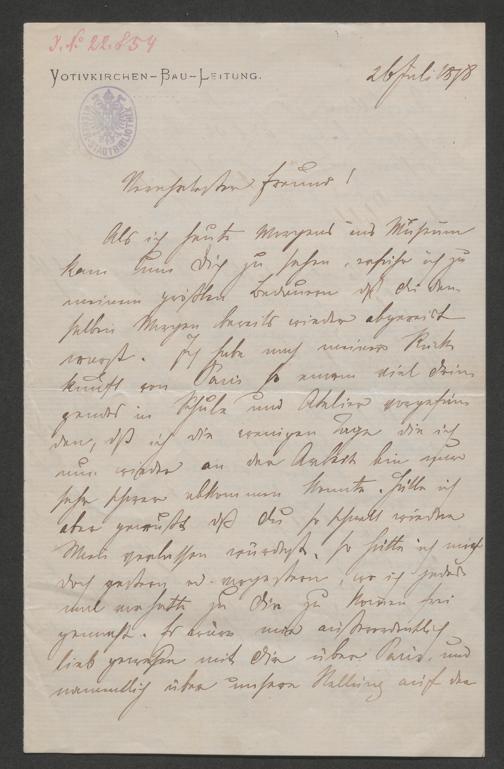 J. No 22.854
VOTIVKIRCHEN-BAU-LEITUNG.
26 Juli 1878
WIENER STADTBIBLIOTHEK
Verehrtester Freund!
Als ich heute Morgens ins Museum
kam um Dich zu sehen, erfuhr ich zu
meinem größten Bedauern dß du den
selben Morgen bereits wieder abgereist
warst. Ich habe nach meiner Rück
kunft von Paris so enorm viel drin
gendes in Schule und Atelier vorgefun
den, dß ich die wenigen Tage die ich
nun wieder an der Arbeit bin nur
sehr schwer abkommen konnte. Hätte ich
aber gewußt dß du so schnell wieder
Wien verlassen würdest, so hätte ich mich
doch gestern od. vorgestern, wo ich jedes
mal vorhatte zu Dir zu kommen frei
gemacht. Es wäre mir außerordentlich
lieb gewesen mit Dir über Paris, und
namentlich über unsere Stellung auf der